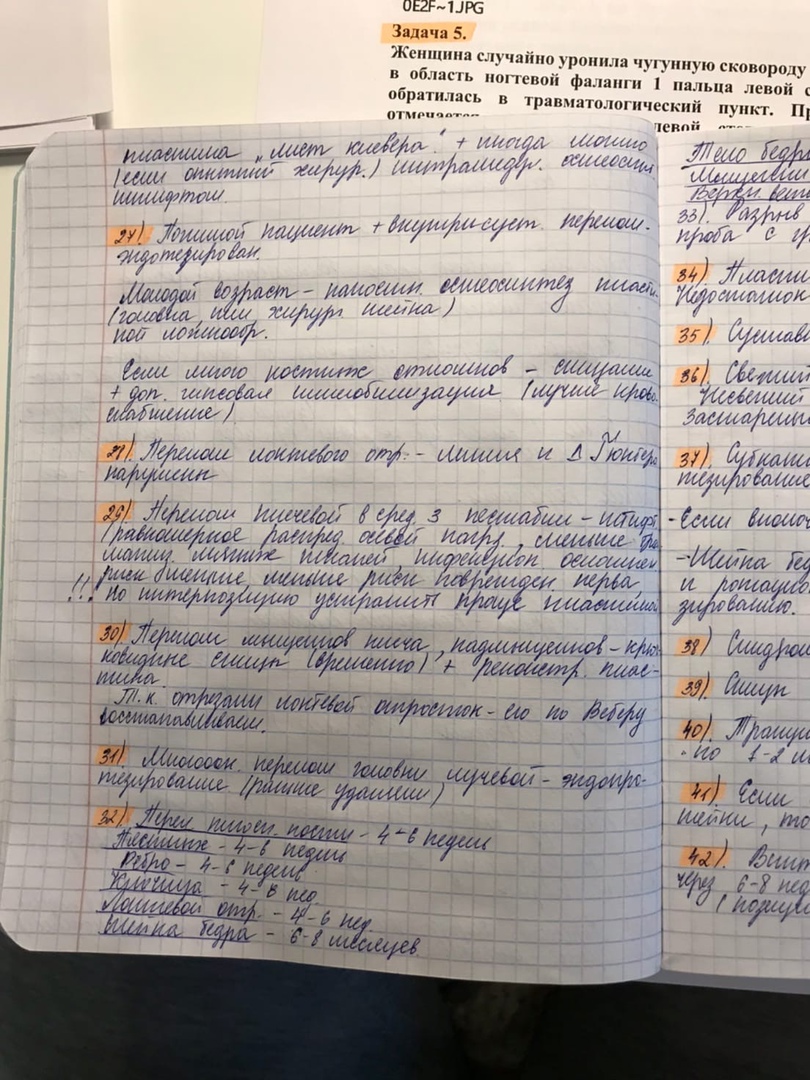 0E2F~1.JPG
Задача 5.
Женщина случайно уронила чугунную сковороду
в область ногтевой фаланги 1 пальца левой с
обратилась в травматологический пункт. Пр
отмечается
левой
пластина „лист клевера" + иногда можно
(если опытный хирург.) интрамедул. остеосин
штифтом.
27). Пожилой пациент + внутрисуст. перелом-
эндотезирован.
Молодой возраст – накостн. остеосинтез пласти-
(головка или хирург. шейка)
ной
Если много костных отломков – спицами
+ доп. гипсовая иммобилизация (лучше крово-
снабжение)
28). Перелом локтевого отр. – линия и Δ Гюнтера
нарушены
29). Перелом плечевой в сред. 3 – штифт
(равномерное распред. осевой нагру, меньше
мягких тканей инфекцион осложнен
риск меньше, меньше риск поврежден нерва
!!! но интерпозицию устранить проще пластиной
30) Перелом мыщелков плеча, надмыщелков – крю
ковидные спицы (временно) + реконстр. плас-
тина
Т.к. отрезали локтевой отросток – его по Веберу
восстанавливаем.
31). Многооск. перелом головки лучевой – эндопро-
тезирование (раньше удаляли)
32) Перел – 4-6 недель
– 4-6 недель
Ребро – 4-6 недель
Ключица – 4-8 нед
Локтевой отр. – 4-6 нед.
Шейка бедра – 6-8 месяцев
Тело бедра
Мыщелки
33). Разрыв
проба с
34) Пласти
Недостаток
35) Сустав
36). Свежий
Несвежий
Застарелы
37). Субкапи
тезирование
-Если
-Шейка бед
и ротацио
зированию.
38) Синдром
39). Спиц
40).
по 1-2
41) Если
шейки, то
42).
через 6-8 нед